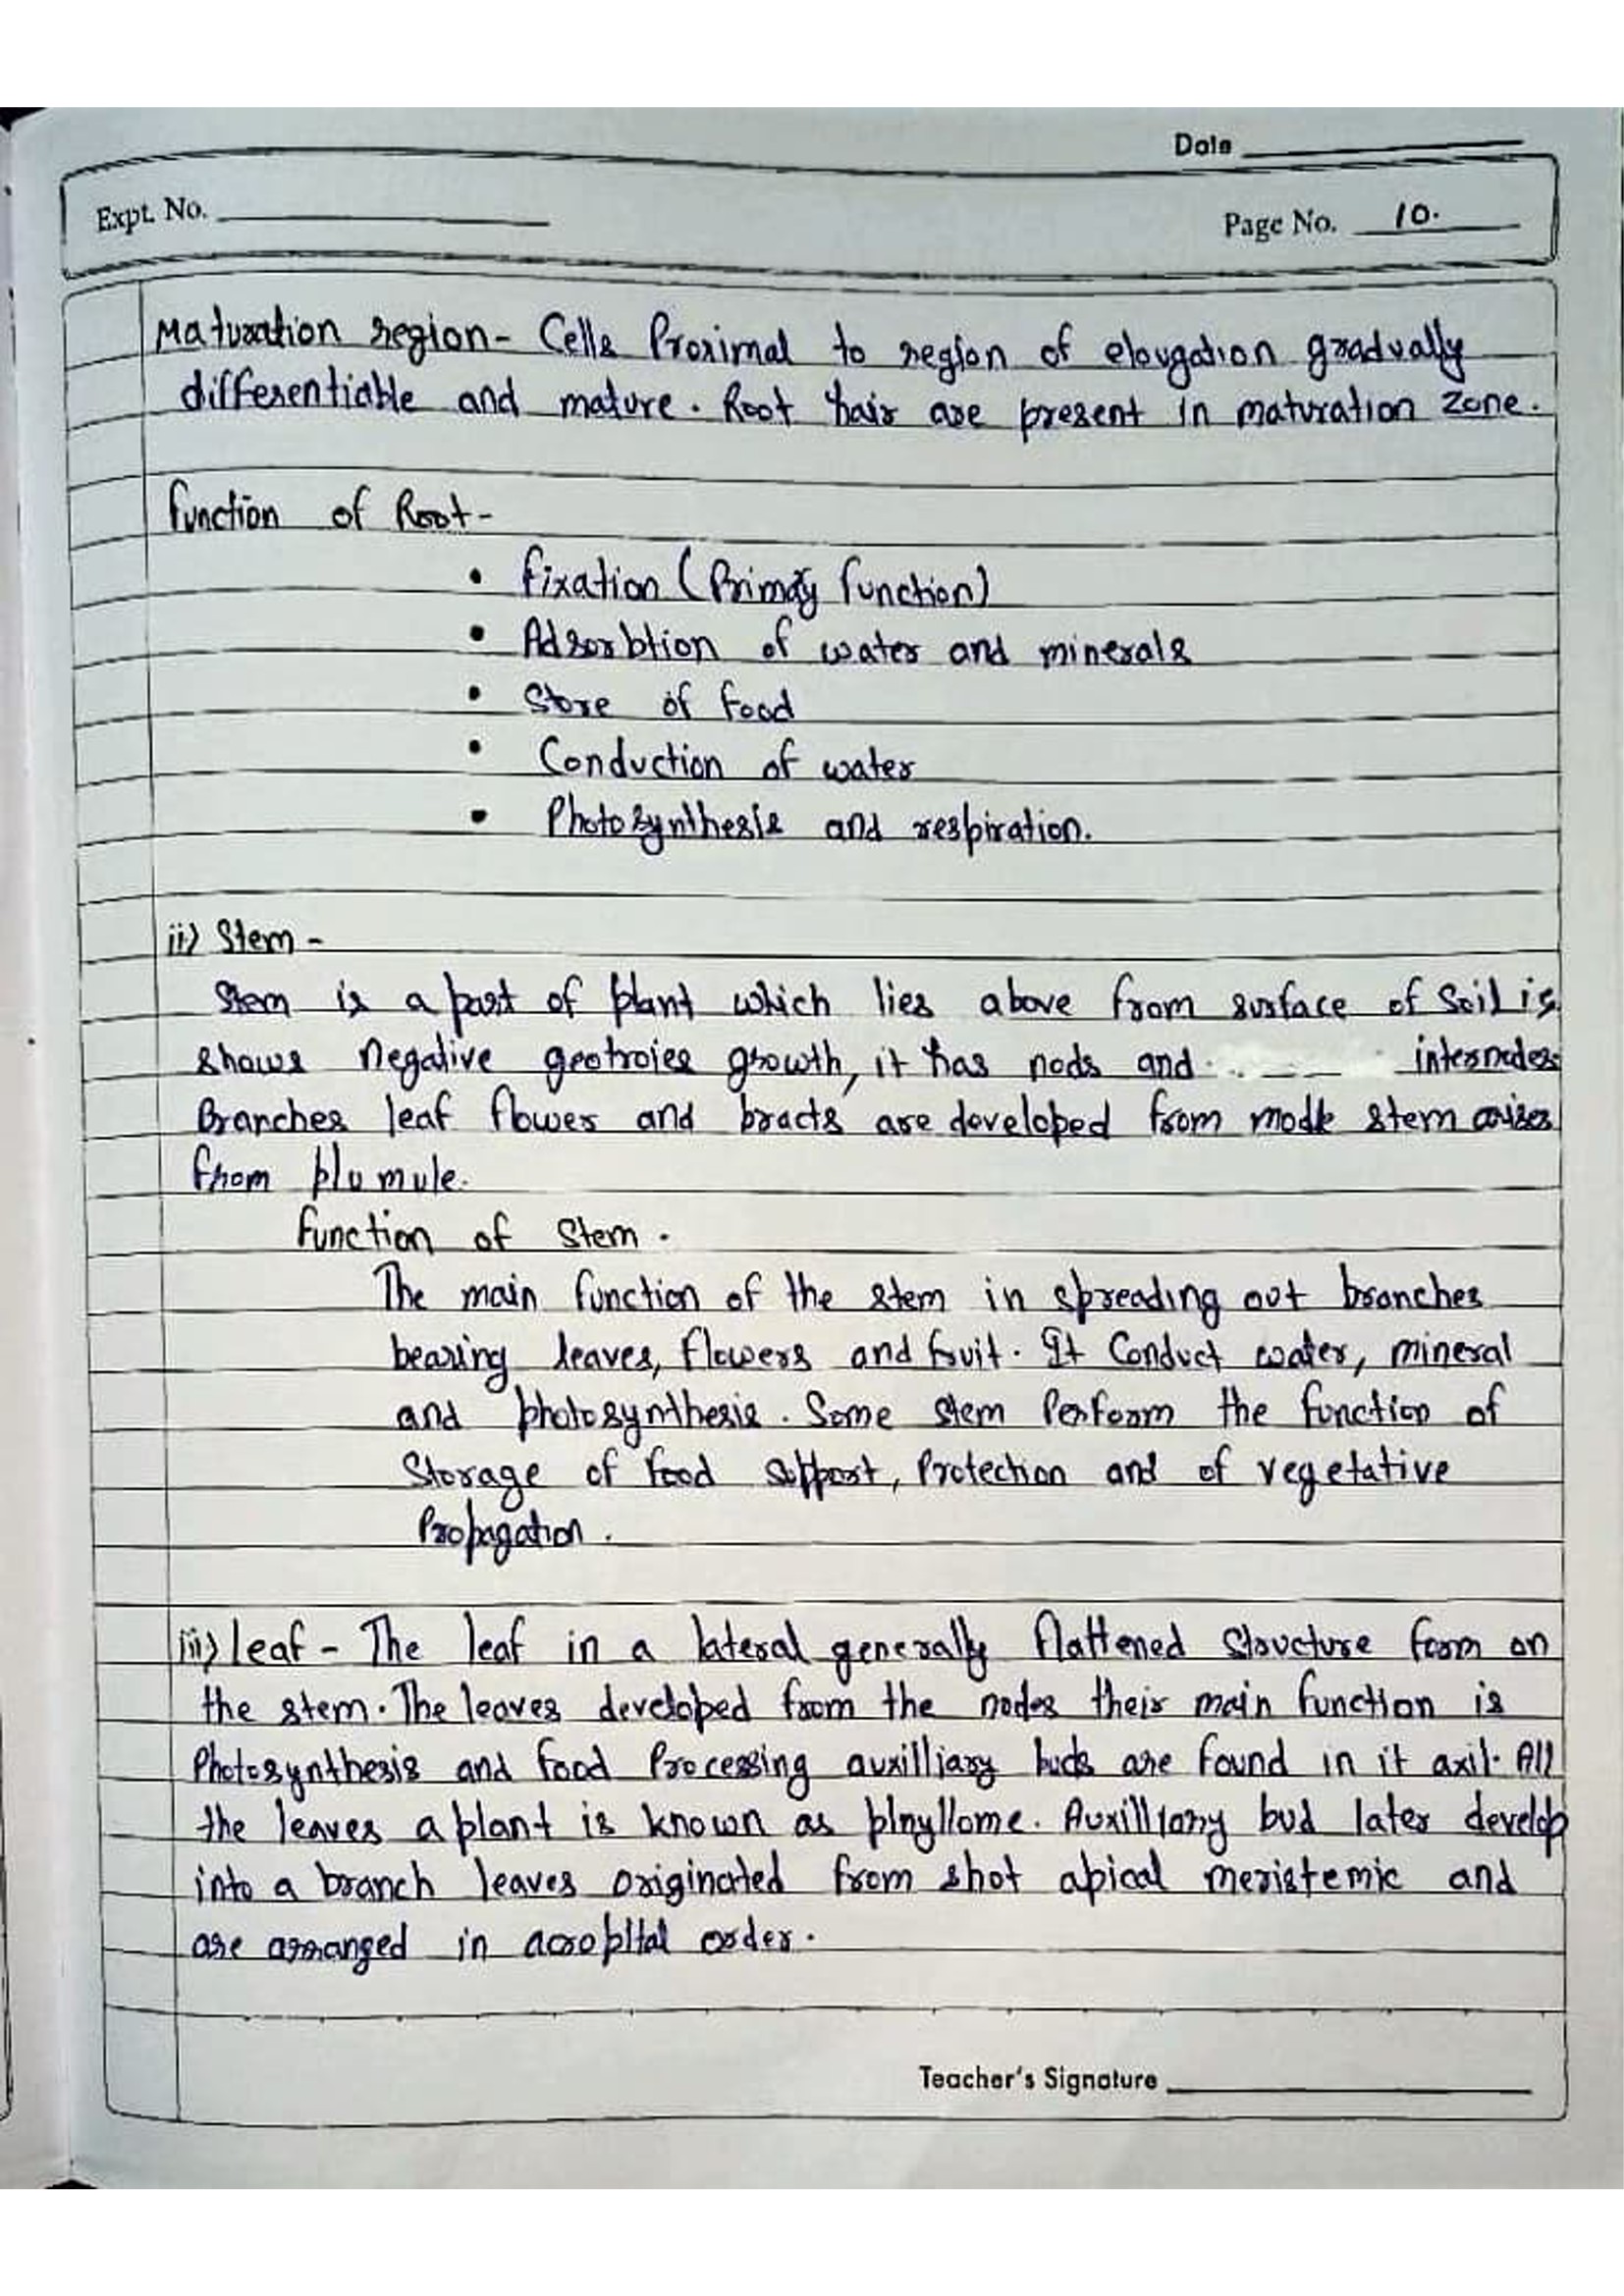 Date
Expt. No.
Page No. 10.
Maturation region - Cells Proximal to region of elougation gradually
differentiable and mature. Root hair are present in maturation zone.
function of Root -
• fixation (Primary function)
• Adsorbtion of water and minerals
• Store of food
• Conduction of water
• Photosynthesis and respiration.
ii) Stem -
Stem is a part of plant which lies above from surface of Soil is
shows negative geotroies growth, it has nods and internodes
Branches leaf flower and bracts are developed from modk stem arises
from plumule.
function of Stem.
The main function of the stem in spreading out branches
bearing leaves, flowers and fruit. It Conduct water, mineral
and photosynthesis. Some stem Perform the function of
Storage of food support, Protection and of vegetative
Propagation.
iii) leaf - The leaf in a lateral generally flattened Structure form on
the stem. The leaves developed from the nodes their main function is
Photosynthesis and food Processing auxilliary buds are found in it axil. All
the leaves a plant is known as plnyllome. Auxilliary bud later develop
into a branch leaves originated from shot apical meristemic and
are arranged in acropital order.
Teacher's Signature